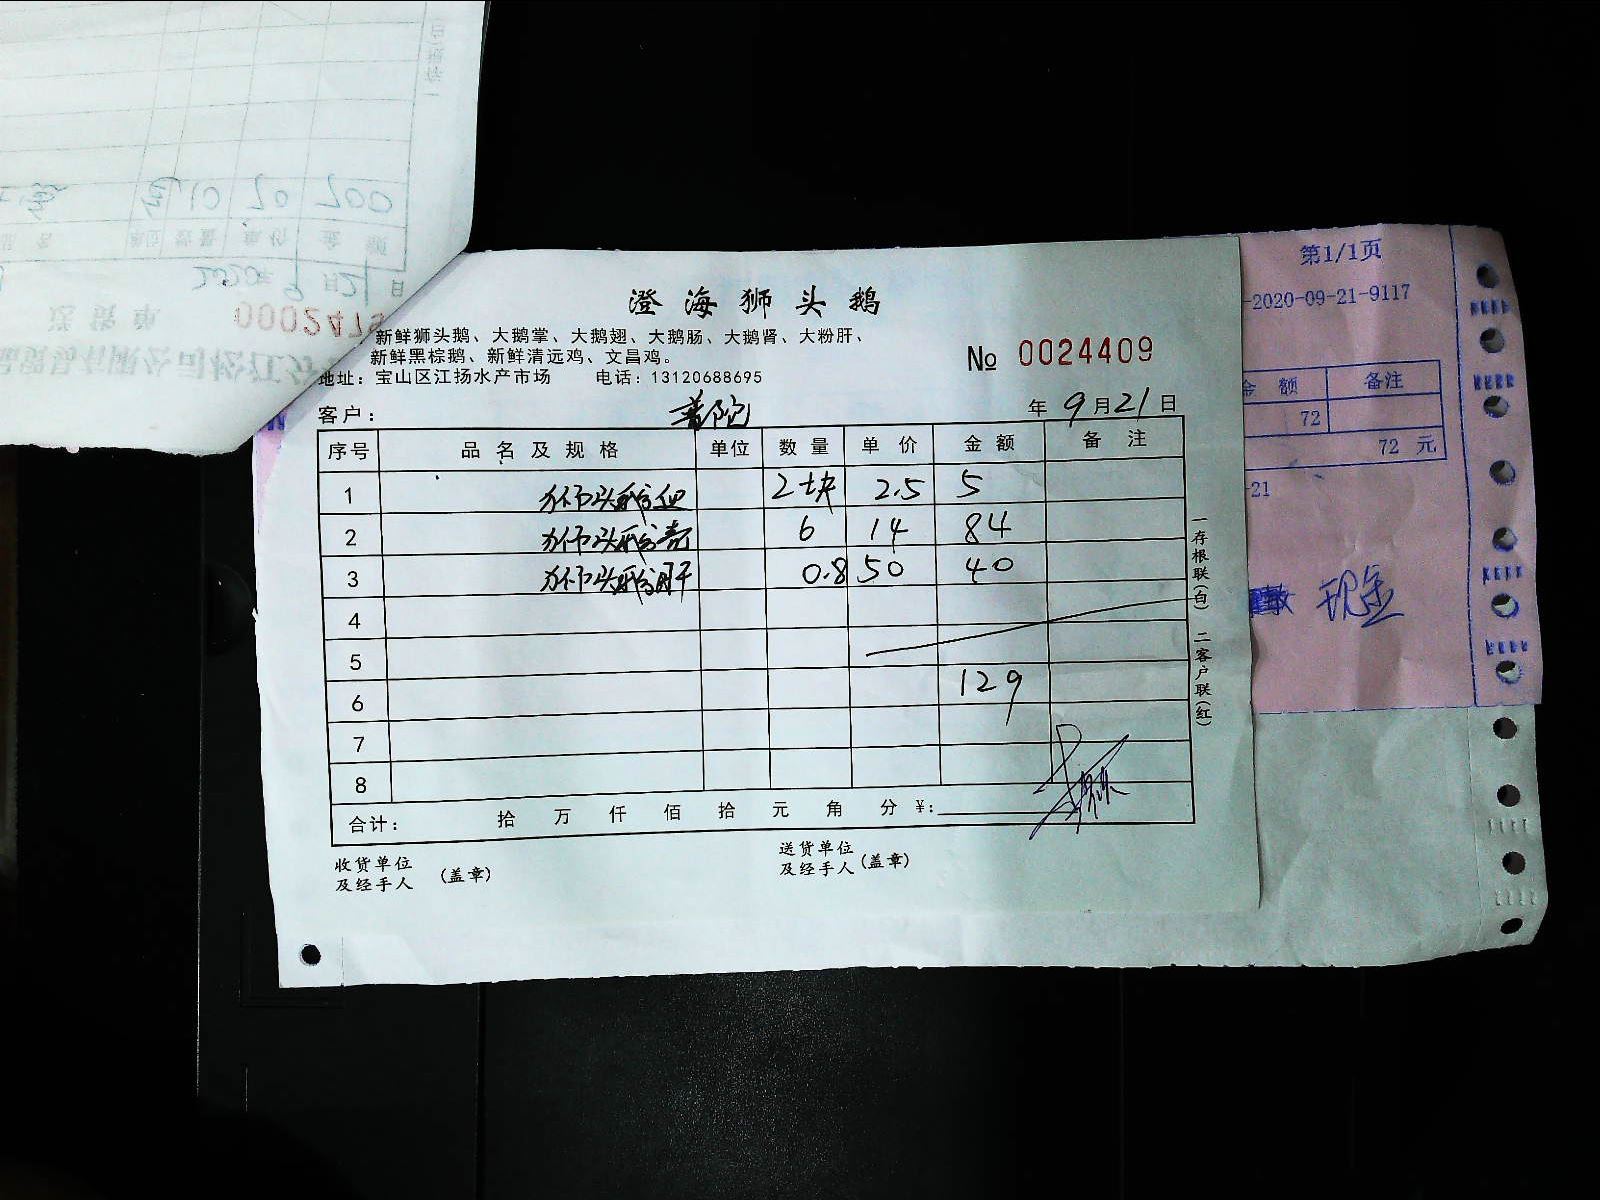 澄海狮头鹅
新鲜狮头鹅、大鹅掌、大鹅翅、大鹅肠、大鹅肾、大粉肝、
新鲜黑棕鹅、新鲜清远鸡、文昌鸡。
№ 0024409
地址：宝山区江扬水产市场 电话：13120688695
客户： 普陀 年 9 月 21 日
序号 品名及规格 单位 数量 单价 金额 备注
1 狮头鹅血 2块 2.5 5
2 狮头鹅壳 6 14 84
3 狮头鹅肝 0.8 50 40
4
5
6 129
7
8
合计： 拾 万 仟 佰 拾 元 角 分 ¥:
收货单位
及经手人 (盖章)
送货单位
及经手人 (盖章)
一存根联(白) 二客户联(红)
第1/1页
-2020-09-21-9117
金额 备注
72
72 元
-21
现金
送货单 0002479
2020年9月21日
单位 数量 单价 金额
10 70 700